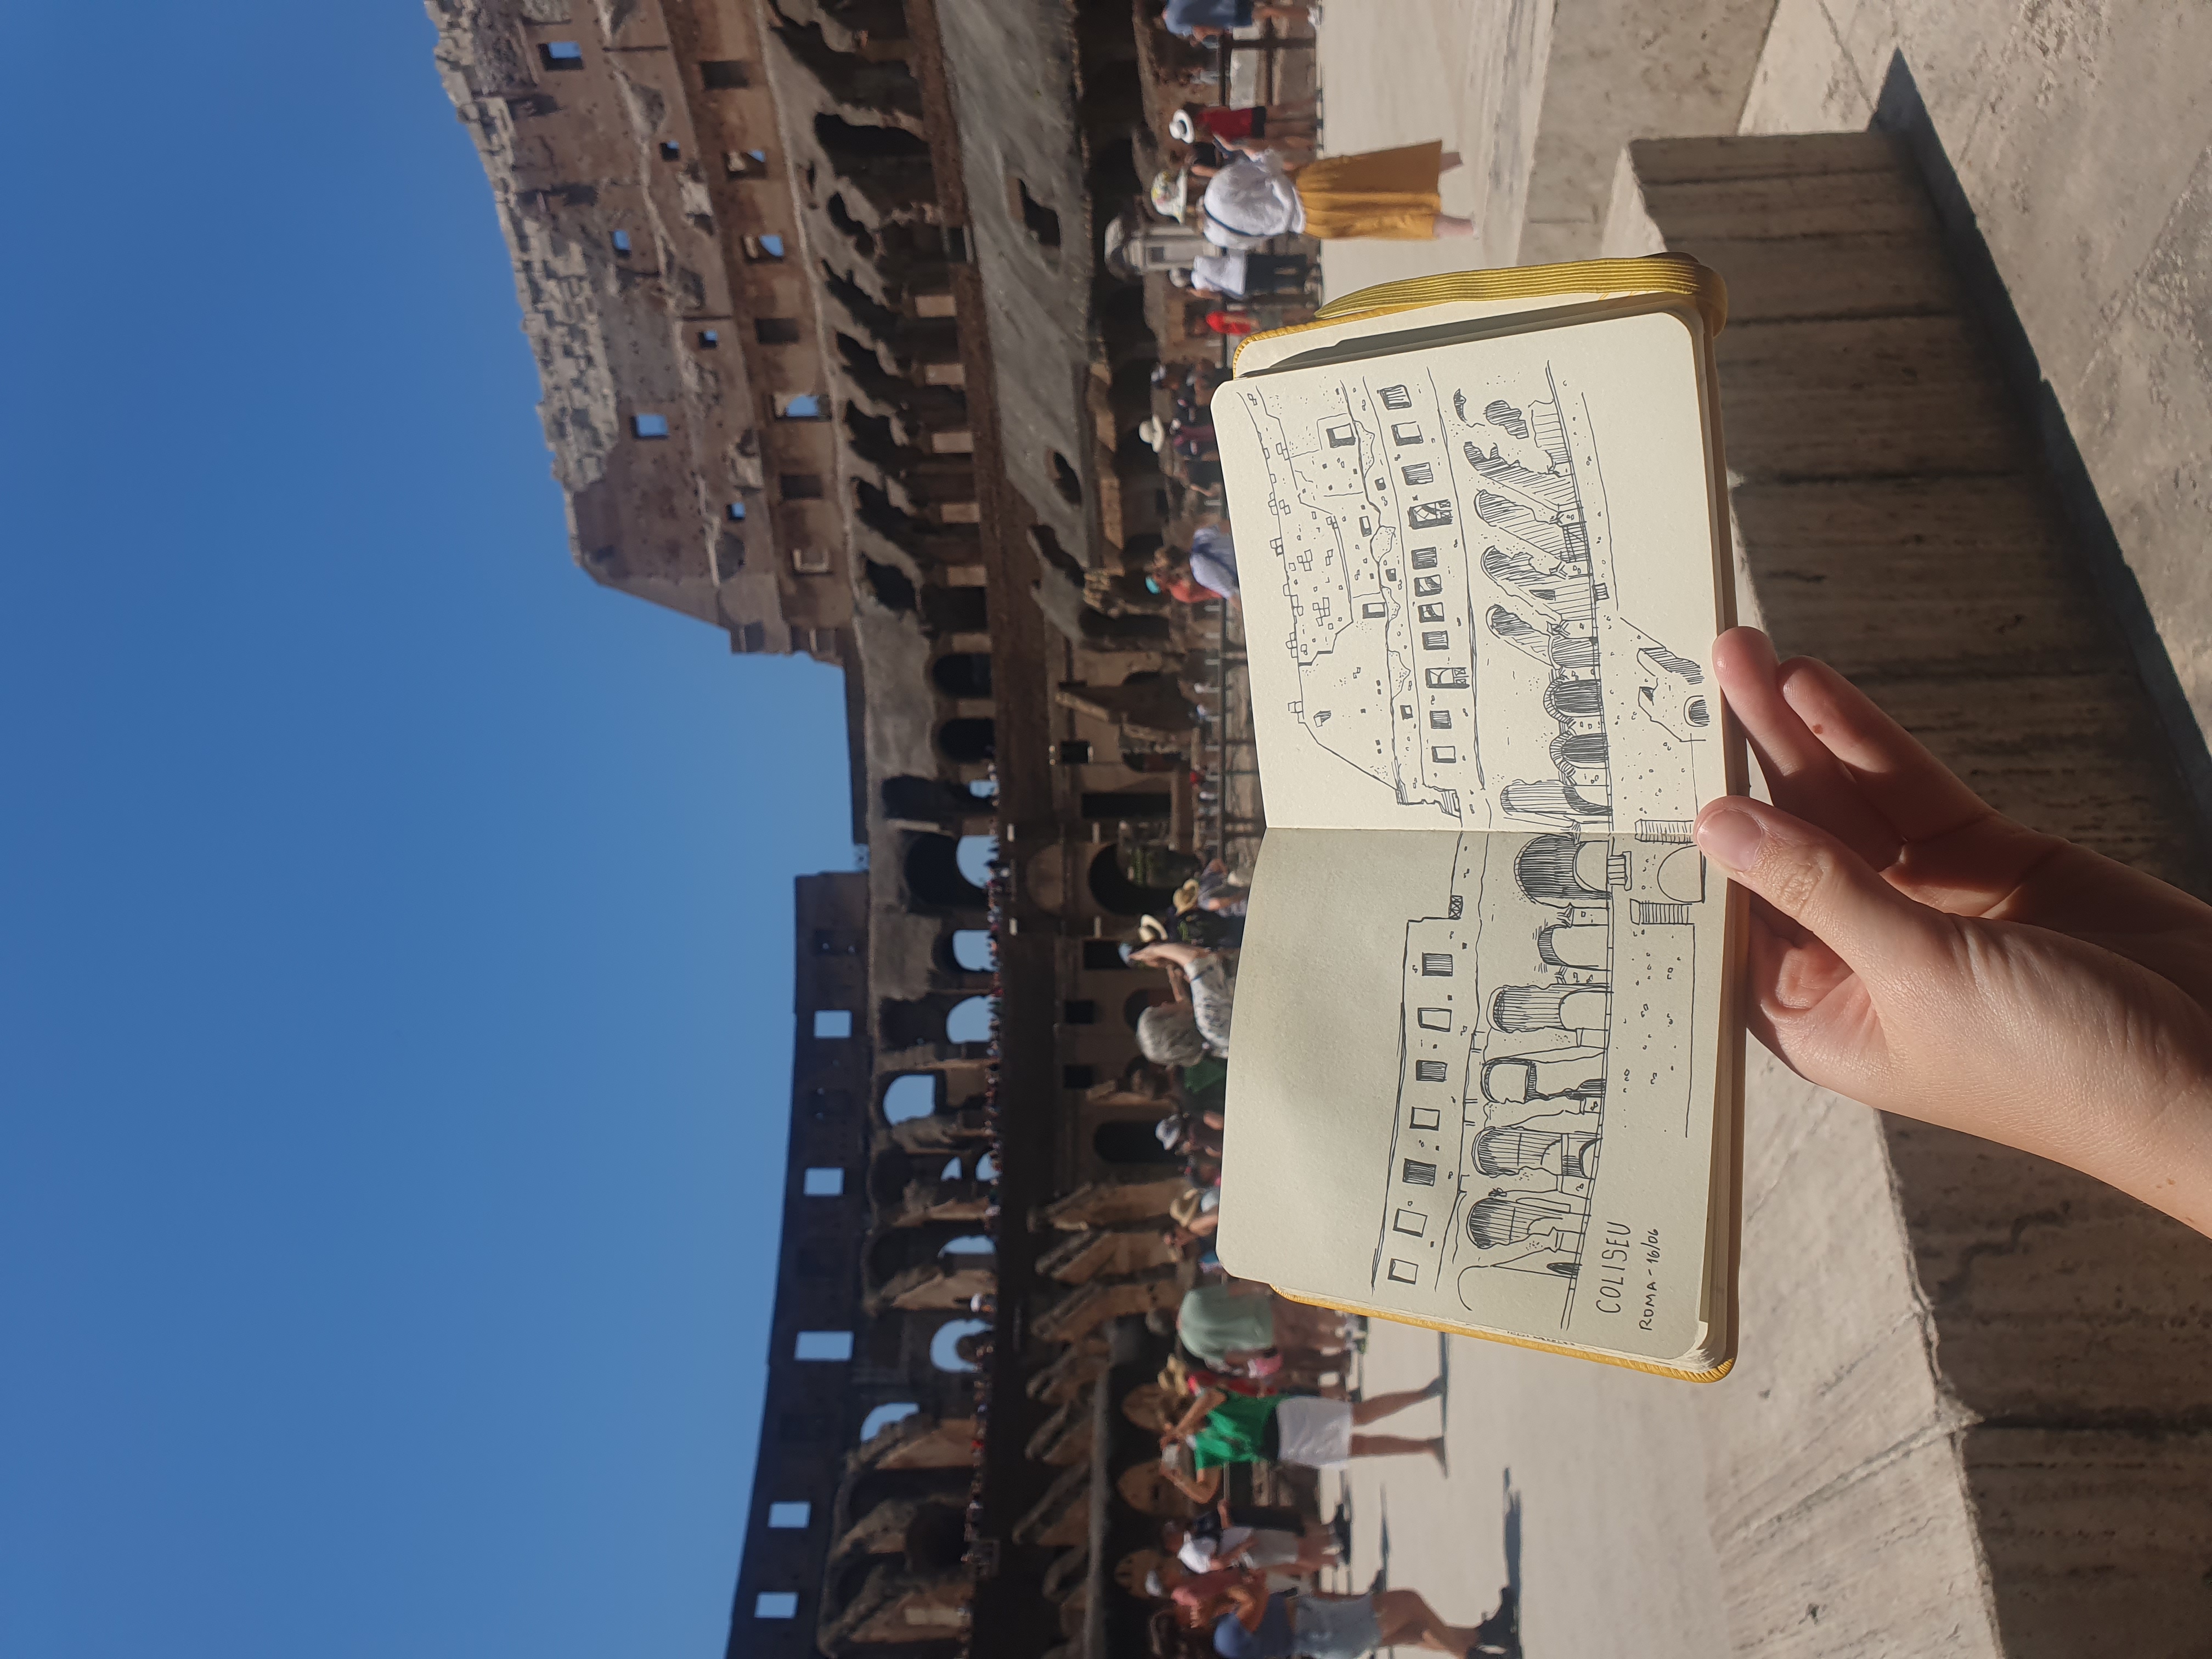 COLISEU
ROMA - 16/06